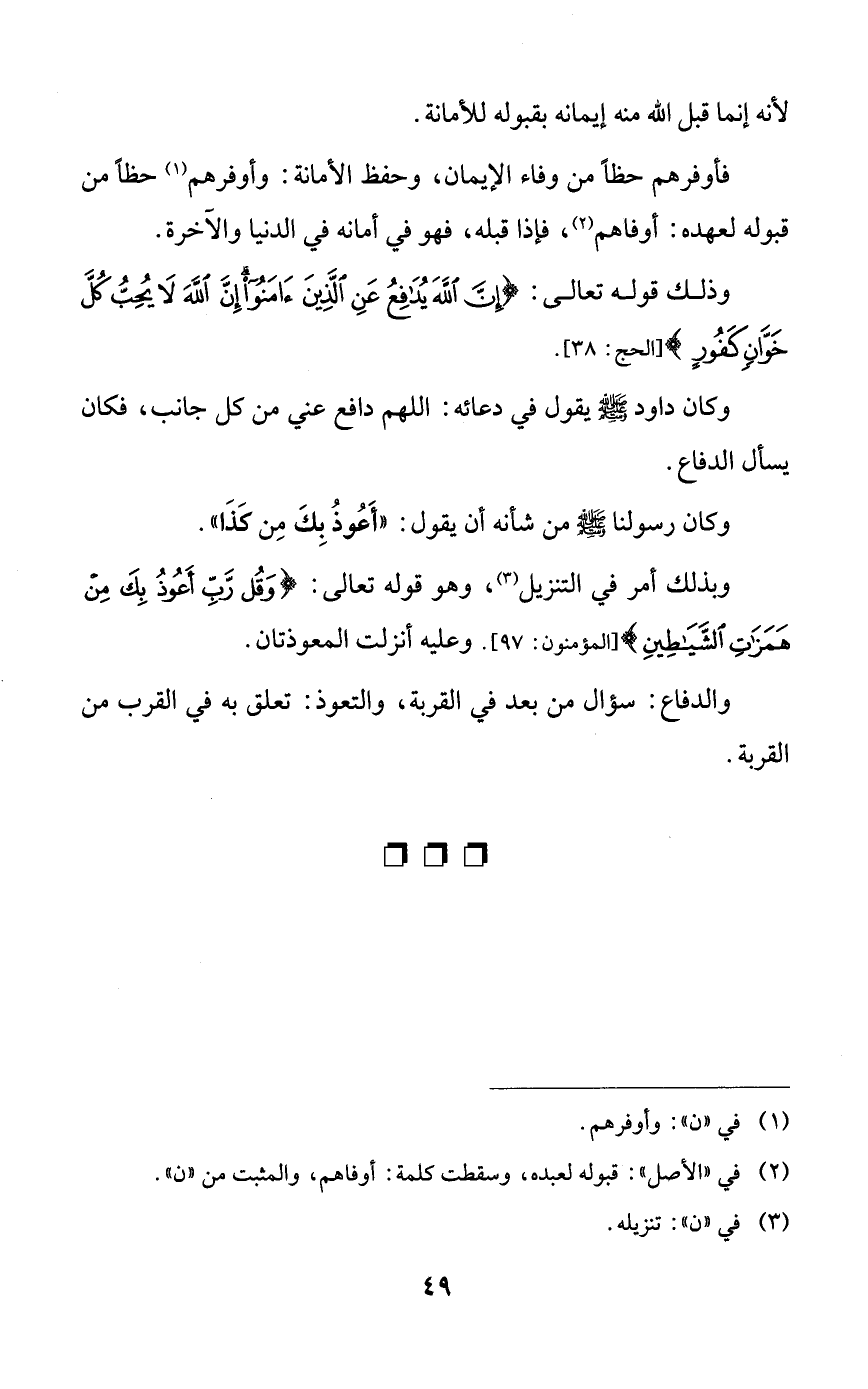 لأنه إنما قبل الله منه إيمانه بقبوله للأمانة.
فأوفرهم حظاً من وفاء الإيمان، وحفظ الأمانة: وأوفرهم(١) حظاً من
قبوله لعهده: أوفاهم(٢)، فإذا قبله، فهو في أمانه في الدنيا والآخرة.
وذلك قوله تعالى: ﴿إِنَّ ٱللَّهَ يُدَٰفِعُ عَنِ ٱلَّذِينَ ءَامَنُوٓا۟ ۗ إِنَّ ٱللَّهَ لَا يُحِبُّ كُلَّ
خَوَّانٍ كَفُورٍ﴾ [الحج: ٣٨].
وكان داود ﷺ يقول في دعائه: اللهم دافع عني من كل جانب، فكان
يسأل الدفاع.
وكان رسولنا ﷺ من شأنه أن يقول: «أَعُوذُ بِكَ مِن كَذَا».
وبذلك أمر في التنزيل(٣)، وهو قوله تعالى: ﴿وَقُل رَّبِّ أَعُوذُ بِكَ مِنْ
هَمَزَٰتِ ٱلشَّيَٰطِينِ﴾ [المؤمنون: ٩٧]. وعليه أنزلت المعوذتان.
والدفاع: سؤال من بعد في القربة، والتعوذ: تعلق به في القرب من
القربة.
(١) في «ن»: وأوفرهم.
(٢) في «الأصل»: قبوله لعبده، وسقطت كلمة: أوفاهم، والمثبت من «ن».
(٣) في «ن»: تنزيله.
٤٩